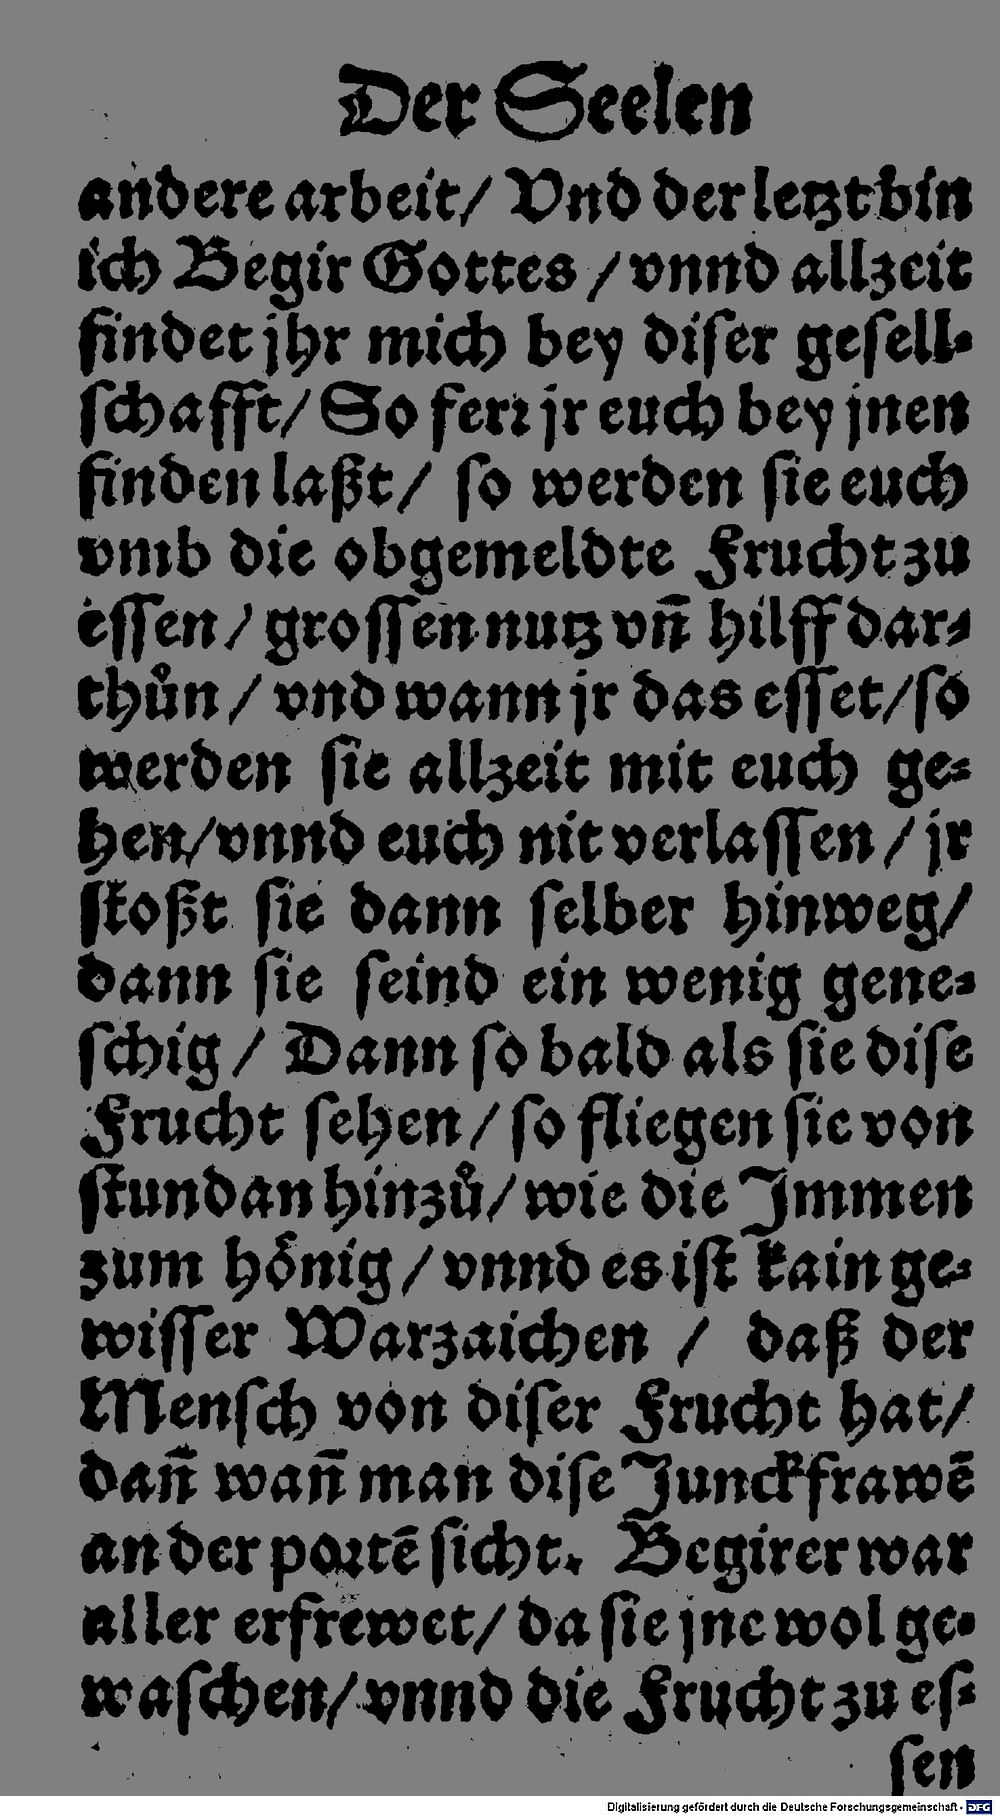 Der Seelen
andere arbeit/ Vnd der letzt bin
ich Begir Gottes / vnnd allzeit
findet jhr mich bey diſer geſell-
ſchafft/ So ferꝛ jr euch bey jnen
finden laßt/ ſo werden ſie euch
vmb die obgemeldte Frucht zu
eſſen / groſſen nutz vn̄ hilff dar-
thůn / vnd wann jr das eſſet/ſo
werden ſie allzeit mit euch ge-
hen/vnnd euch nit verlaſſen / jr
ſtoßt ſie dann ſelber hinweg/
dann ſie ſeind ein wenig gene-
ſchig / Dann ſo bald als ſie diſe
Frucht ſehen / ſo fliegen ſie von
ſtund an hinzů/ wie die Jmmen
zum hoͤnig / vnnd es iſt kain ge-
wiſſer Warzaichen / daß der
Menſch von diſer Frucht hat/
dan̄ wan̄ man diſe Junckfrawē
an der poꝛtē ſicht. Begirer war
aller erfrewet/ da ſie jne wol ge-
waſchen/ vnnd die Frucht zu eſ-
ſen
Digitalisierung gefördert durch die Deutsche Forschungsgemeinschaft - DFG